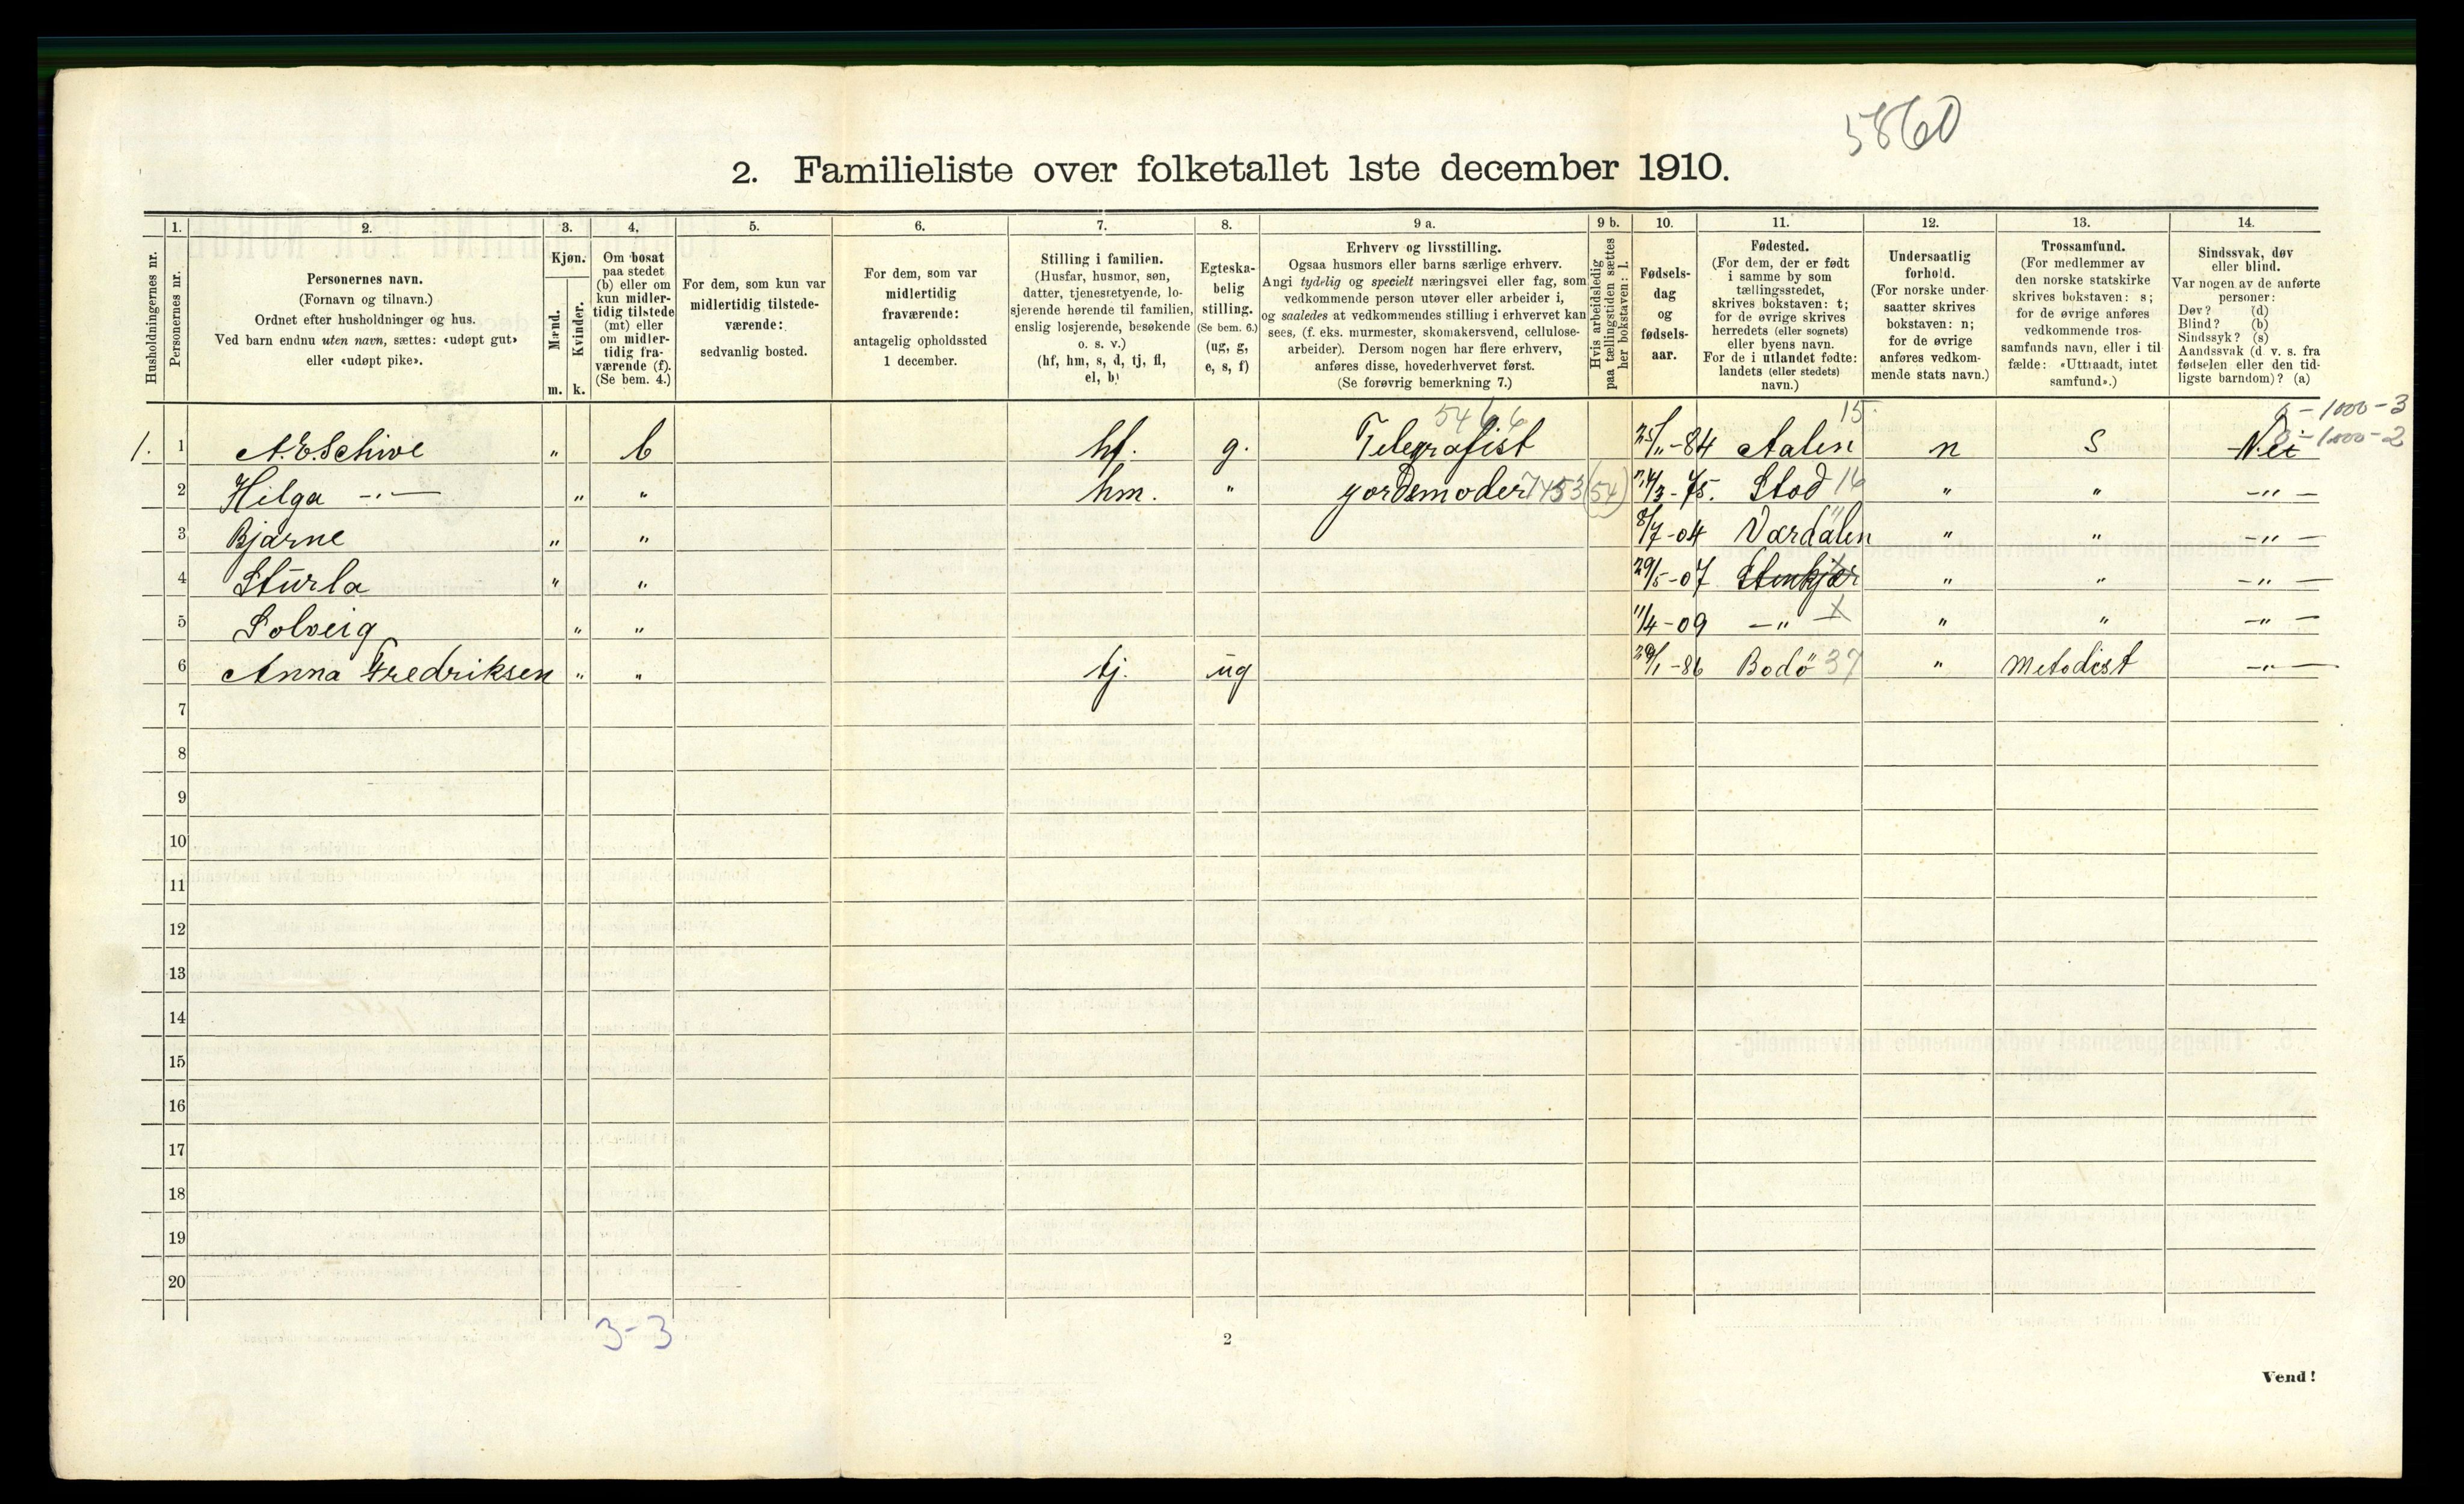 5860
2. Familieliste over folketallet 1ste december 1910.
Husholdningernes nr.
1.
Personernes nr.
2.
Personernes navn.
(Fornavn og tilnavn.)
Ordnet efter husholdninger og hus.
Ved barn endnu uten navn, sættes: «udøpt gut»
eller «udøpt pike».
3.
Kjøn.
Mænd.
Kvinder.
m. k.
4.
Om bosat
paa stedet
(b) eller om
kun midler-
tidig tilstede
(mt) eller
om midler-
tidig fra-
værende (f).
(Se bem. 4.)
5.
For dem, som kun var
midlertidig tilstede-
værende:
sedvanlig bosted.
6.
For dem, som var
midlertidig
fraværende:
antagelig opholdssted
1 december.
7.
Stilling i familien.
(Husfar, husmor, søn,
datter, tjenestetyende, lo-
sjerende hørende til familien,
enslig losjerende, besøkende
o. s. v.)
(hf, hm, s, d, tj, fl,
el, b)
8.
Egteska-
belig
stilling.
(Se bem. 6.)
(ug, g,
e, s, f)
9 a.
Erhverv og livsstilling.
Ogsaa husmors eller barns særlige erhverv.
Angi tydelig og specielt næringsvei eller fag, som
vedkommende person utøver eller arbeider i,
og saaledes at vedkommendes stilling i erhvervet kan
sees, (f. eks. murmester, skomakersvend, cellulose-
arbeider). Dersom nogen har flere erhverv,
anføres disse, hovederhvervet først.
(Se forøvrig bemerkning 7.)
9 b.
Hvis arbeidsledig
paa tællingstiden sættes
her bokstaven: l.
10.
Fødsels-
dag
og
fødsels-
aar.
11.
Fødested.
(For dem, der er født
i samme by som
tællingsstedet,
skrives bokstaven: t;
for de øvrige skrives
herredets (eller sognets)
eller byens navn.
For de i utlandet fødte:
landets (eller stedets)
navn.)
12.
Undersaatlig
forhold.
(For norske under-
saatter skrives
bokstaven: n;
for de øvrige
anføres vedkom-
mende stats navn.)
13.
Trossamfund.
(For medlemmer av
den norske statskirke
skrives bokstaven: s;
for de øvrige anføres
vedkommende tros-
samfunds navn, eller i til-
fælde: «Uttraadt, intet
samfund».)
14.
Sindssvak, døv
eller blind.
Var nogen av de anførte
personer:
Døv? (d)
Blind? (b)
Sindssyk? (s)
Aandssvak (d. v. s. fra
fødselen eller den tid-
ligste barndom)? (a)
5466 15 0-1000-3
0-1000-2
1. 1 A.E.Schive " b hf. g. Telegrafist 25/11-84 Aalen n S Nei
2 Hilga -"- " " hm. " jordemoder 7453 (54) 24/3-75. Stod 16 " " -"-
3 Bjarne " " 8/7-04 Værdalen " " " -"-
4 Sturla " " 29/5-07 Stenkjær " " -"-
5 Solveig " " 11/4-09 -"- x " " -"-
6 Anna Fredriksen " " tj. ug 29/1-86 Bodö 37 " Metodist -"-
7
8
9
10
11
12
13
14
15
16
17
18
19
20
3-3
2
Vend!